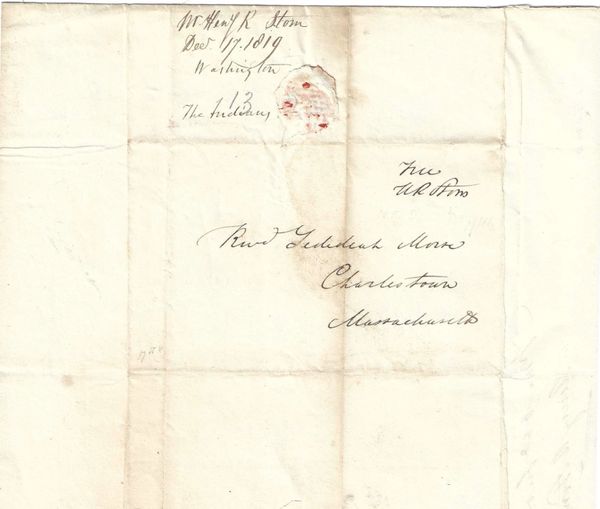 Mr Henry R Storrs
Dec. 17. 1819
Washington
13
The Indians.
Free
H R Storrs
Revd Jedediah Morse
Charlestown
Massachusetts